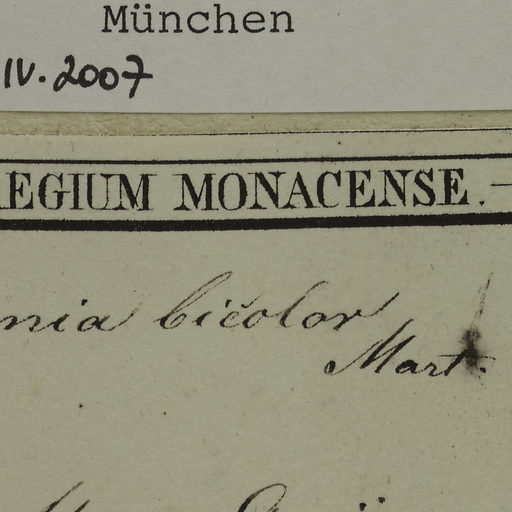 München
IV. 2007
REGIUM MONACENSE. —
nia bicolor
Mart.